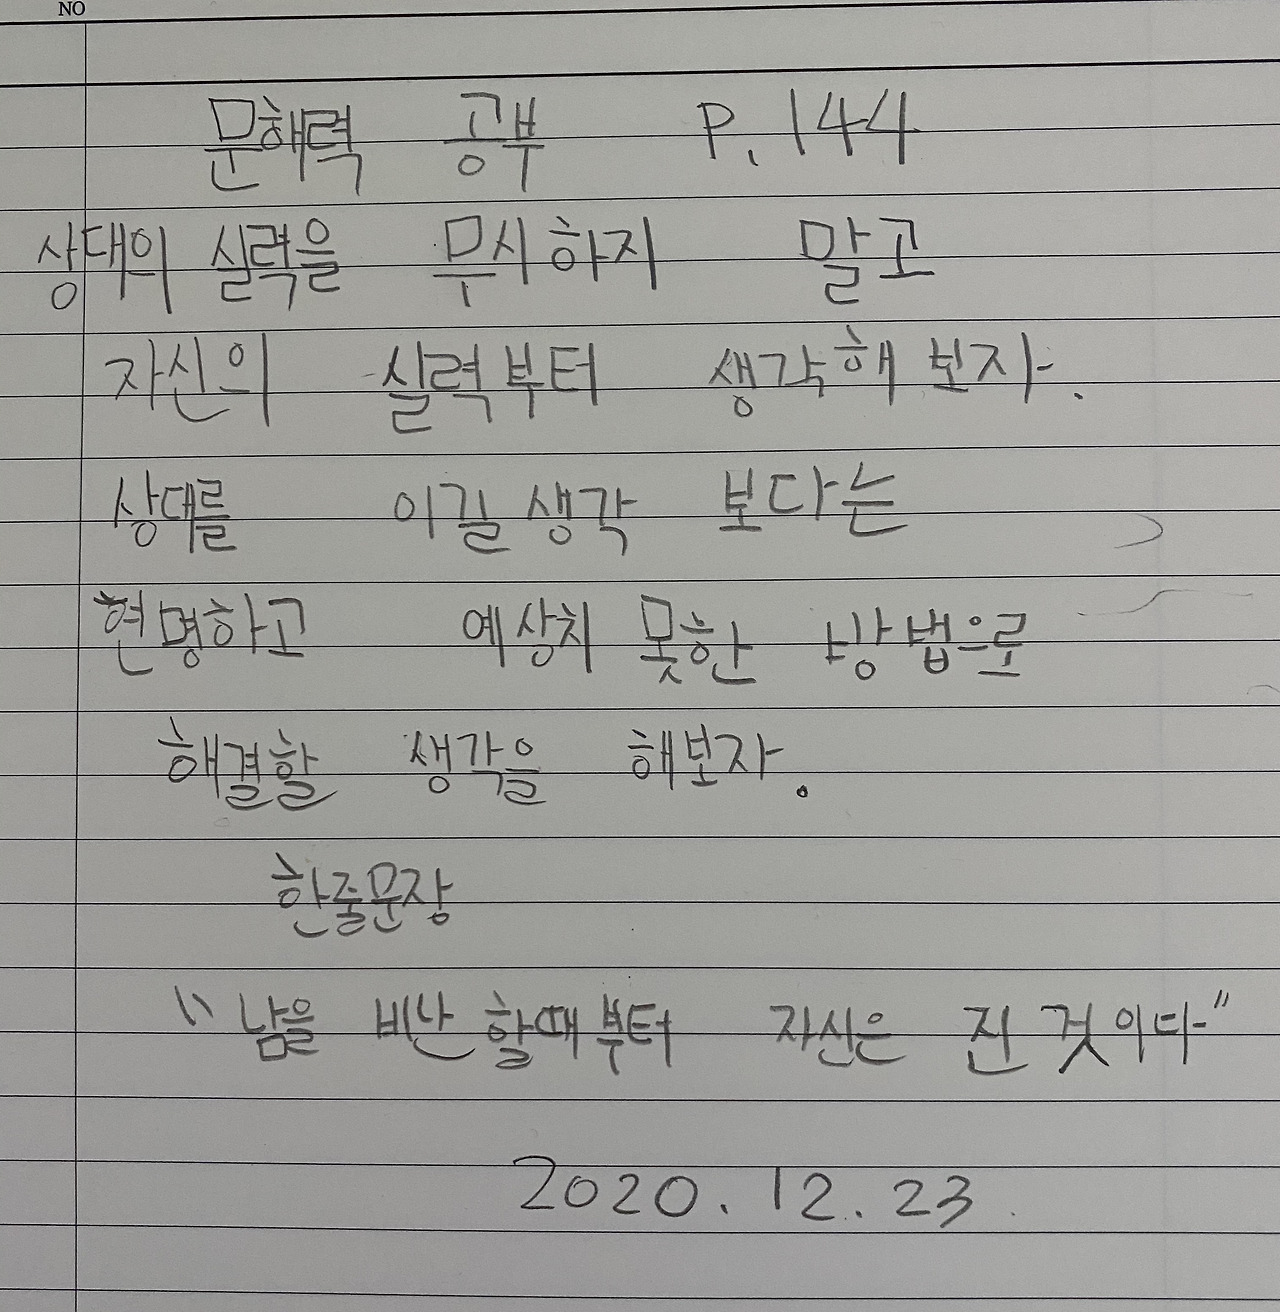 NO
문해력 공부 P.144
상대의 실력을 무시하지 말고
자신의 실력부터 생각해 보자.
상대를 이길 생각 보다는
현명하고 예상치 못한 방법으로
해결할 생각을 해보자.
한줄문장
"남을 비난 할때부터 자신은 진 것이다"
2020.12.23